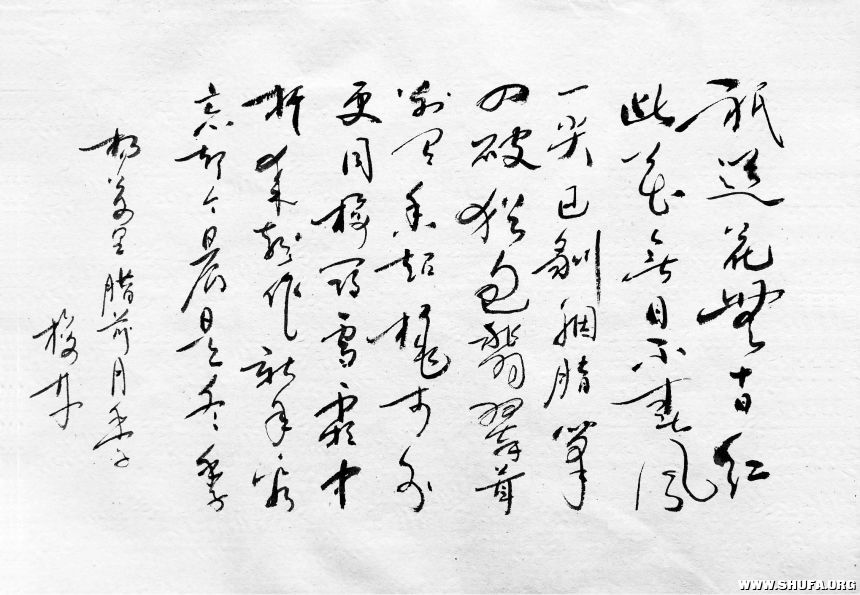 祇道花無十日红
此花無日不春風
一尖已剥胭脂筆
四破猶包翡翠茸
别有香超桃李外
更同梅鬥雪霜中
折来喜作新年看
忘却今晨是冬季
杨万里腊前月季
WWW.SHUFA.ORG